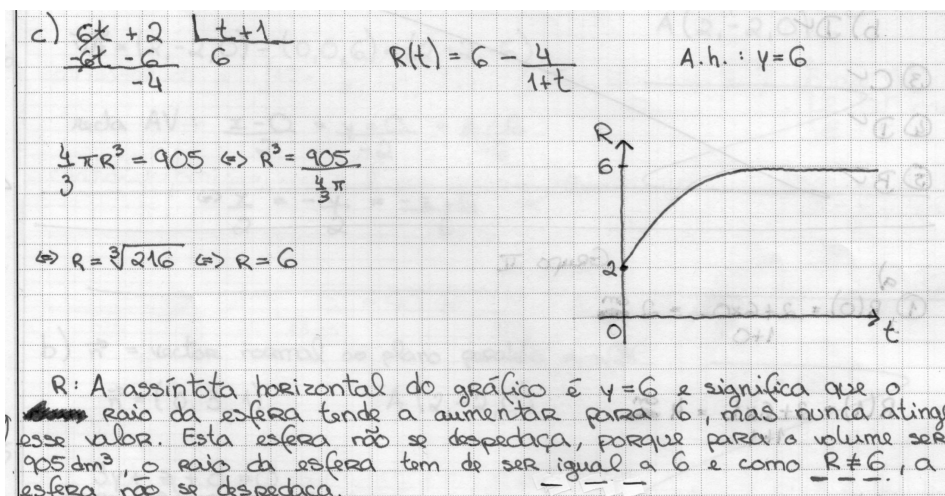 c) 6t + 2 | t+1
-6t - 6 6
-4
R(t) = 6 - 4/(1+t)
A.h.: y=6
4/3 πR³ = 905 ⇔ R³ = 905/(4/3 π)
⇔ R = ³√216 ⇔ R = 6
R
6
2
0
t
R: A assíntota horizontal do gráfico é y=6 e significa que o
raio da esfera tende a aumentar para 6, mas nunca atinge
esse valor. Esta esfera não se despedaça, porque para o volume ser
905 dm³, o raio da esfera tem de ser igual a 6 e como R≠6, a
esfera não se despedaça.